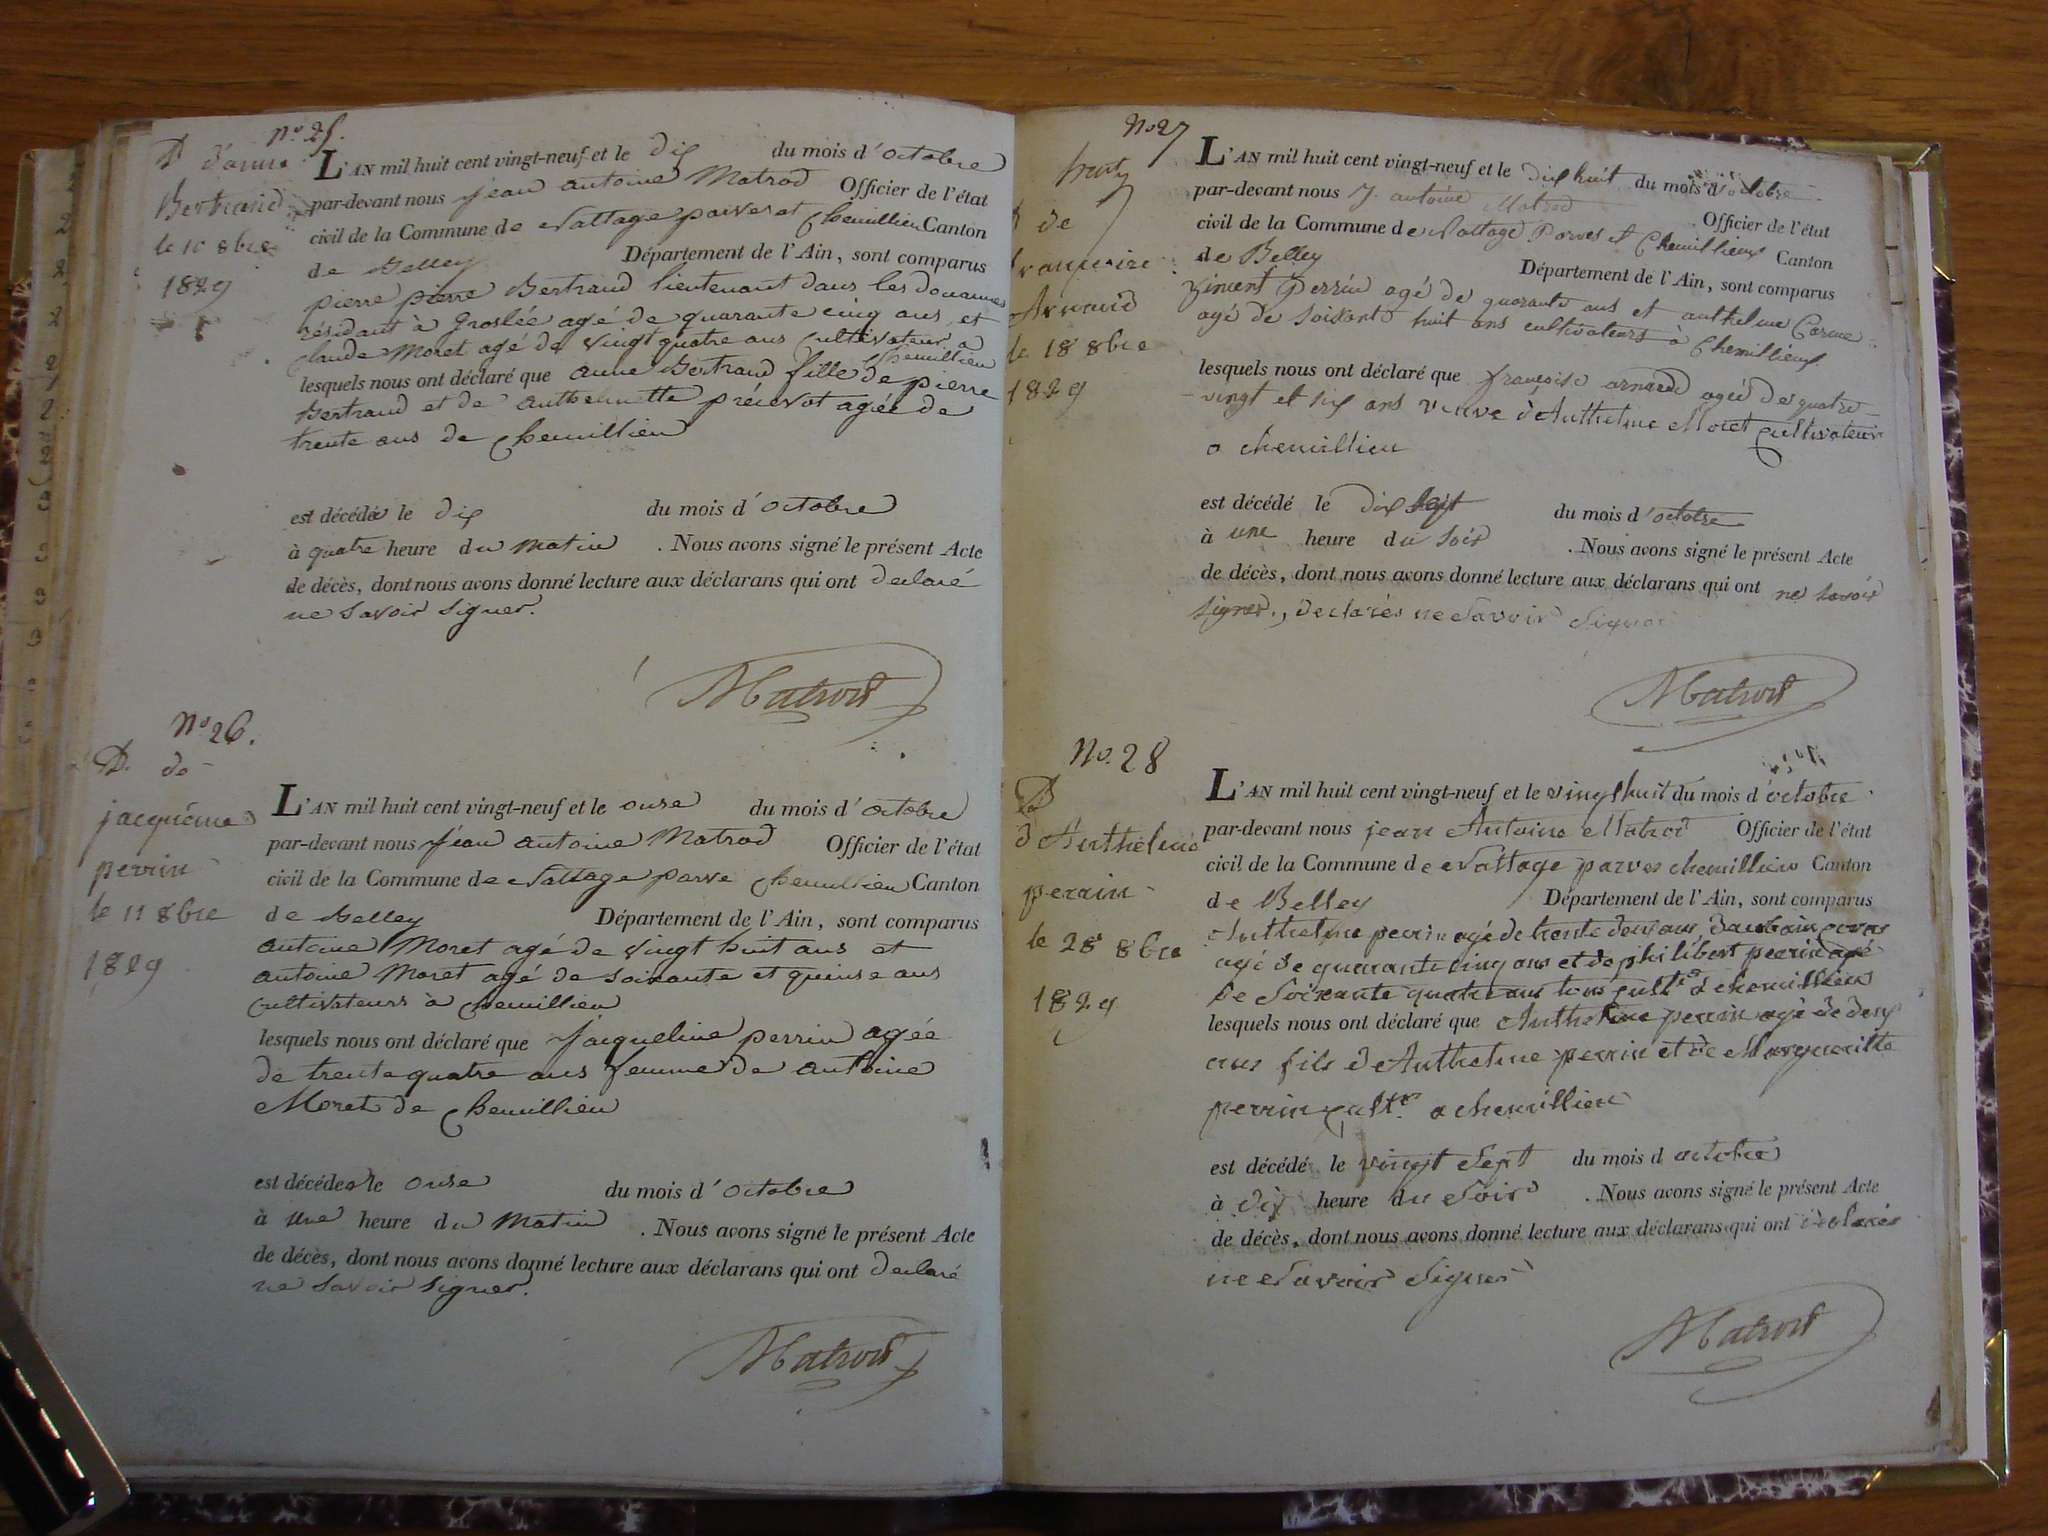 No 25.
D. d'anne
Bertrand
le 10 8bre
1829
L'AN mil huit cent vingt-neuf et le dix du mois d'octobre
par-devant nous jean antoine Matrod Officier de l'état
civil de la Commune de Nattage parves et chemillieu Canton
de Belley Département de l'Ain, sont comparus
pierre pierre Bertrand lieutenant dans les douannes
résidant à Groslée agé de quarante cinq ans, et
claude Moret agé de vingt quatre ans cultivateur a
chemillieu
lesquels nous ont déclaré que anne Bertrand fille de pierre
Bertrand et de anthelmette agée de
trente ans de chemillieu
est décédée le dix du mois d'octobre
à quatre heure du matin . Nous avons signé le présent Acte
de décès, dont nous avons donné lecture aux déclarans qui ont declaré
ne savoir signer.
Matrod
No 26.
D. de
jacquéline
perrin
le 11 8bre
1829
L'AN mil huit cent vingt-neuf et le onse du mois d'octobre
par-devant nous jean antoine Matrod Officier de l'état
civil de la Commune de Nattage parve chemillieu Canton
de Belley Département de l'Ain, sont comparus
antoine Moret agé de vingt huit ans et
antoine Moret agé de soixante et quinse ans
cultivateurs à chemillieu
lesquels nous ont déclaré que jacqueline perrin agée
de trente quatre ans femme de antoine
Moret de chemillieu
est décédée le onse du mois d'octobre
à une heure du matin . Nous avons signé le présent Acte
de décès, dont nous avons donné lecture aux déclarans qui ont declaré
ne savoir signer.
Matrod
No 27
D de
françoise
Arnaud
le 18 8bre
1829
L'AN mil huit cent vingt-neuf et le dix huit du mois d'octobre
par-devant nous J. antoine Matrod Officier de l'état
civil de la Commune de Nattage Parves et Chemillieux Canton
de Belley Département de l'Ain, sont comparus
vincent perrin agé de quarante ans et anthelme Carme
agé de soixante huit ans cultivateurs à Chemillieux
lesquels nous ont déclaré que françoise arnaud agée de quatre
vingt et six ans veuve d'Anthelme Moret cultivateur
a chemillieu
est décédé le dix sept du mois d'octobre
à une heure du soir . Nous avons signé le présent Acte
de décès, dont nous avons donné lecture aux déclarans qui ont ne savoir
signer., declarés ne savoir signer
Matrod
No. 28
D
d'Anthelme
perrin
le 28 8bre
1829
L'AN mil huit cent vingt-neuf et le vingt huit du mois d'octobre
par-devant nous jean Antoine Matrod Officier de l'état
civil de la Commune de Nattage parves chemillieu Canton
de Belley Département de l'Ain, sont comparus
Anthelme perrin agé de trente deux ans,
agé de quarante cinq ans et de philibert perrin agé
de soixante quatre ans tous cultrs a chemillieu
lesquels nous ont déclaré que Anthelme perrin agé de deux
ans fils d'Anthelme perrin et de Margueritte
perrin cultrs a chemillieu
est décédé le vingt sept du mois d octobre
à dix heure du soir . Nous avons signé le présent Acte
de décès, dont nous avons donné lecture aux déclarans qui ont declarés
ne savoir signer
Matrod